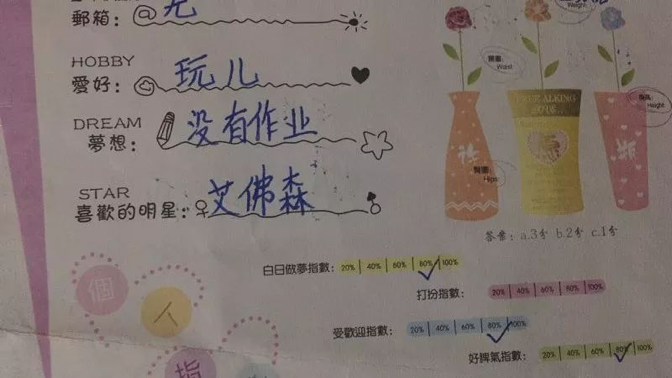 郵箱：@ 无
HOBBY
愛好： 玩儿
DREAM
夢想： 没有作业
STAR
喜歡的明星： 艾佛森
腰圍：
Waist
Weight
身高：
Height
臀圍：
Hips
答案：a.3分 b.2分 c.1分
白日做夢指數： 20% 40% 60% 80% 100%
打扮指數： 20% 40% 60% 80% 100%
受歡迎指數： 20% 40% 60% 80% 100%
好脾氣指數： 20% 40% 60% 80% 100%
個人指